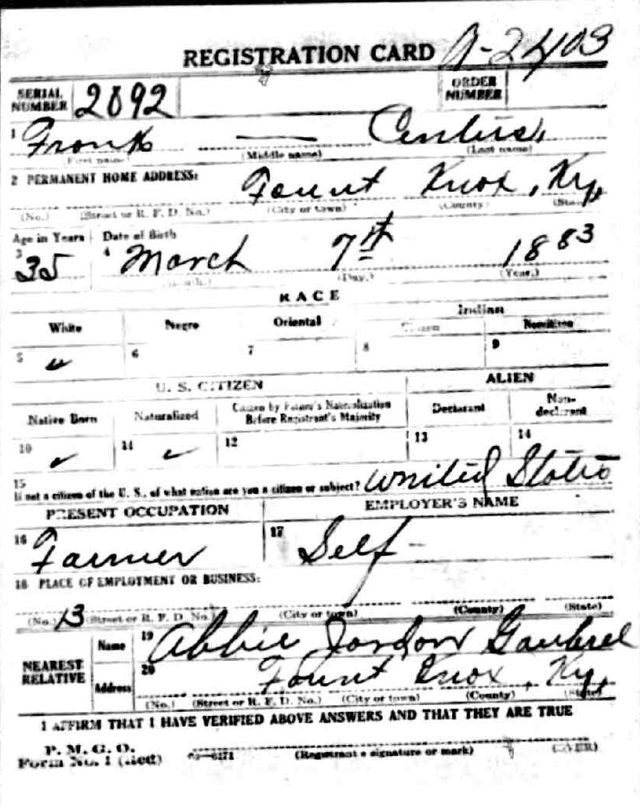 REGISTRATION CARD A-2403
SERIAL NUMBER 2892 ORDER NUMBER
1 Frank — Centers,
(First name) (Middle name) (Last name)
2 PERMANENT HOME ADDRESS: Fount Knox, Ky,
(No.) (Street or R. F. D. No.) (City or town) (County) (State)
Age in Years Date of Birth
3 35 4 March 7th 1883
(Month.) (Day.) (Year.)
RACE
White Negro Oriental Indian
Citizen Noncitizen
5 ✓ 6 7 8 9
U. S. CITIZEN ALIEN
Native Born Naturalized Citizen by Father's Naturalization Before Registrant's Majority Declarant Non-declarant
10 ✓ 11 ✓ 12 13 14
15
If not a citizen of the U. S., of what nation are you a citizen or subject? United States
PRESENT OCCUPATION EMPLOYER'S NAME
16 Farmer 17 Self -
18 PLACE OF EMPLOYMENT OR BUSINESS:
(No.) 13 (Street or R. F. D. No.) (City or town) (County) (State)
NEAREST RELATIVE Name 19 Abbie Jordon
Address 20 Fount Knox, Ky,
(No.) (Street or R. F. D. No.) (City or town) (County) (State)
I AFFIRM THAT I HAVE VERIFIED ABOVE ANSWERS AND THAT THEY ARE TRUE
P. M. G. O.
Form No. 1 (Red) 03—6171 (Registrant's signature or mark) (OVER)